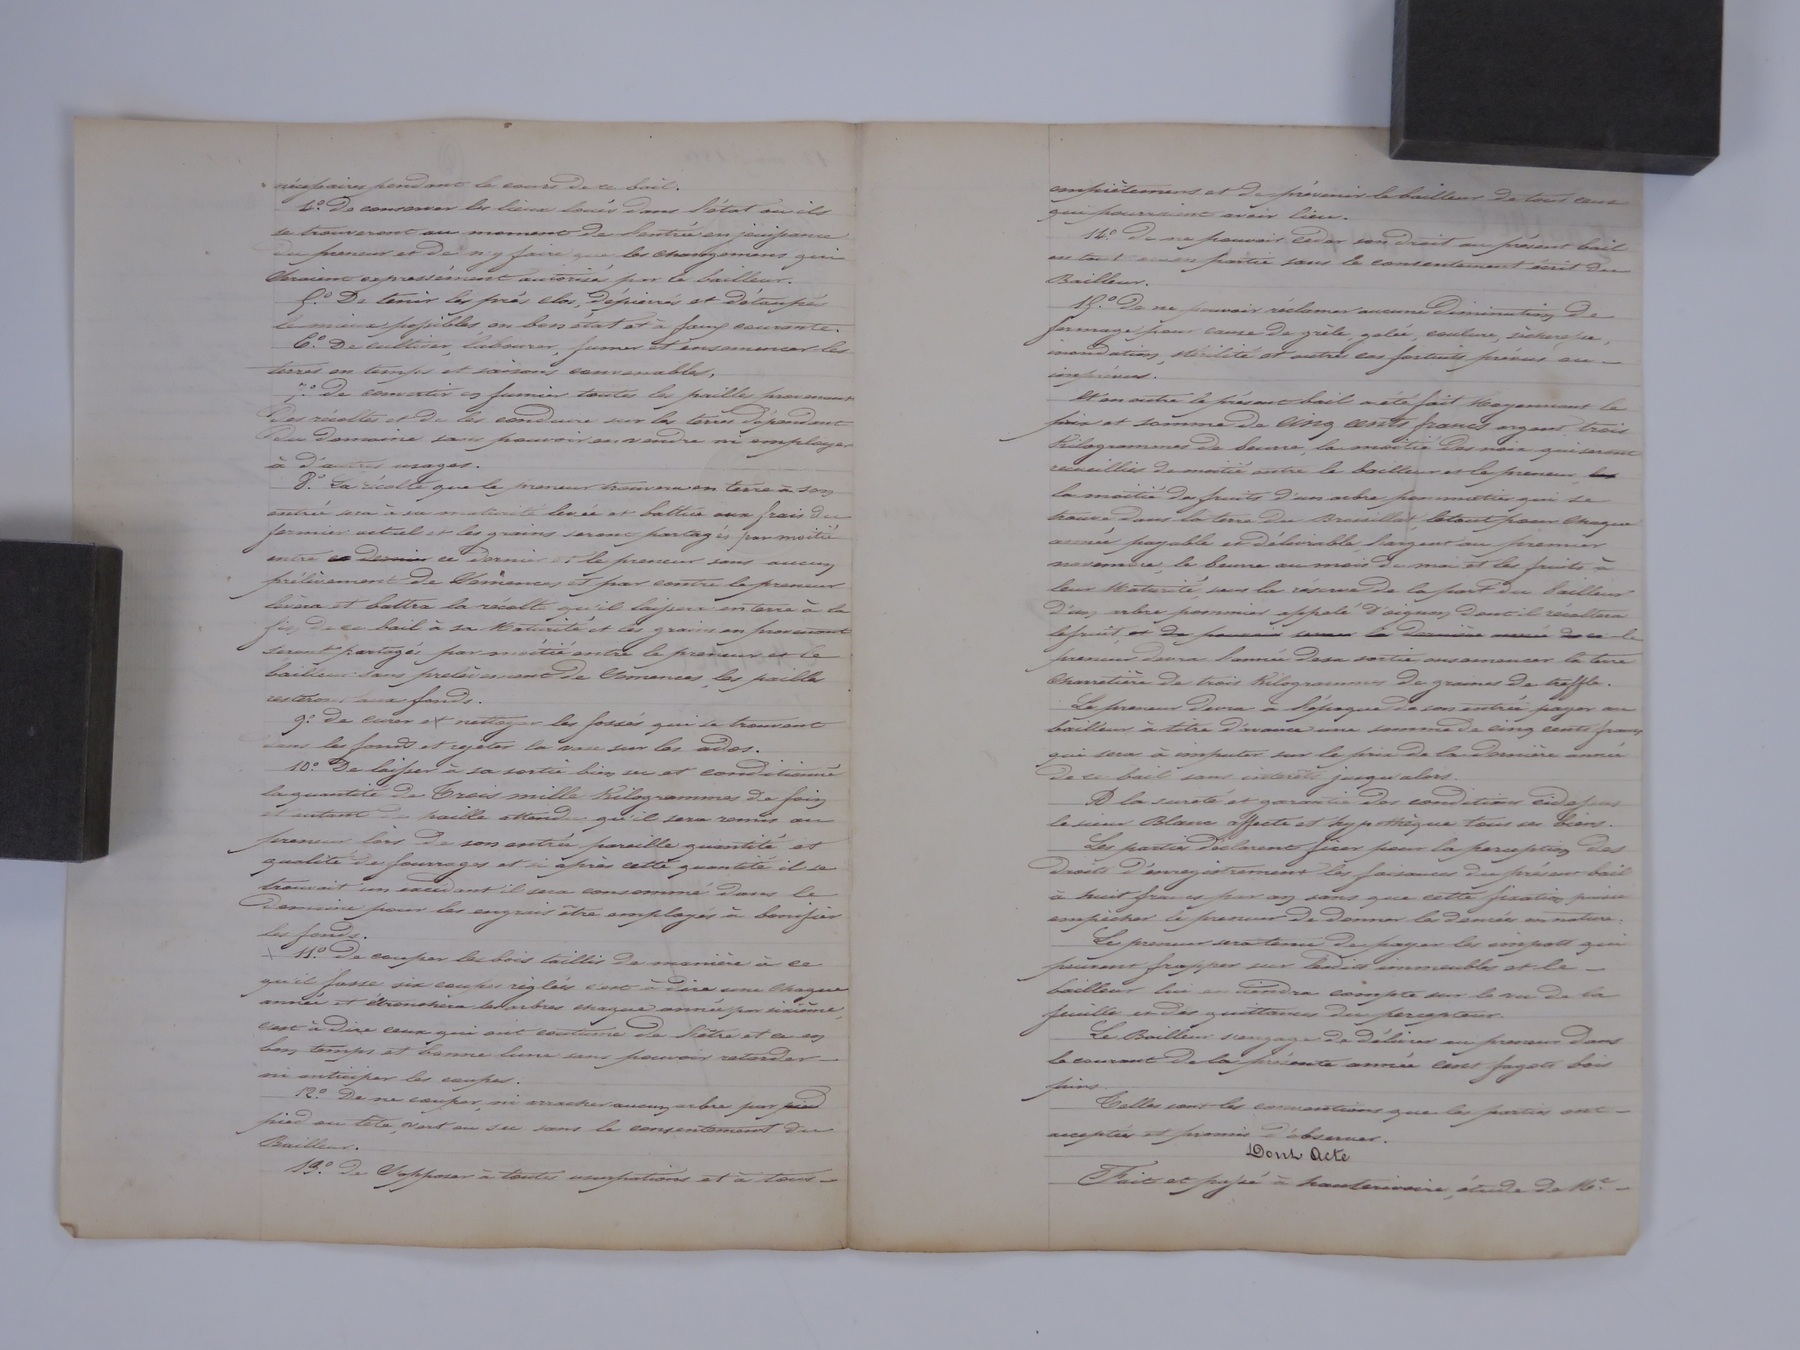 nécessaires pendant le cours de ce bail.
4.º De conserver les lieux loués dans l'état où ils
se trouveront au moment de l'entrée en jouissance
du preneur et de n'y faire que les changemens qui
seraient expressément autorisés par le bailleur.
5.º De tenir les prés clos, dépierrés et détaupés
le mieux possibles en bon état et à faux courante.
6.º De cultiver, labourer, fumer et ensemencer les
terres en temps et saisons convenables.
7.º de convertir en fumier toutes les pailles provenant
des récoltes et de les conduire sur les terres dépendant
du domaine sans pouvoir en vendre ni employer
à d'autres usages.
8.º La récolte que le preneur trouvera en terre à son
entrée sera à sa maturité levée et battue aux frais du
fermier actuel et les grains seront partagés par moitié
entre ce dernier ce dernier et le preneur sans aucun
prélèvement de semences et par contre le preneur
lèvera et battra la récolte qu'il laissera en terre à la
fin de ce bail à sa maturité et les grains en provenant
seront partagés par moitié entre le preneur et le
bailleur sans prélèvement de semences, les pailles
resteront aux fonds.
9.º de curer et nettoyer les fossés qui se trouvent
dans les fonds et rejeter la vase sur les ados.
10.º De laisser à sa sortie bien sec et conditionné
la quantité de Trois mille Kilogrammes de foin
et autant de paille attendu qu'il sera remis au
preneur lors de son entrée pareille quantité et
qualité de fourrages et si après cette quantité il se
trouvait un excédant il sera consommé dans le
domaine pour les engrais être employés à bonifier
les fonds.
11.º De couper les bois taillis de manière à ce
qu'il fasse six coupes réglées c'est à dire une chaque
année et étronchera les arbres chaque année par sixième,
c'est à dire ceux qui ont coutume de l'être et ce en
bon temps et bonne lune sans pouvoir retarder
ni anticiper les coupes.
12.º De ne couper, ni arracher aucun arbre par pied
pied ou tête, vert ou sec sans le consentement du
Bailleur.
13.º de s'opposer à toutes usurpations et à tous
empiètemens et de prévenir le bailleur de tous ceux
qui pourraient avoir lieu.
14.º De ne pouvoir céder son droit au présent bail
en tout ou en partie sans le consentement écrit du
Bailleur.
15.º De ne pouvoir réclamer aucune diminution de
fermage pour cause de grêle, gelée, coulure, sécheresse,
inondation, stérilité et autres cas fortuits prévus ou
imprévus.
Et en outre le présent bail a été fait Moyennant le
prix et somme de Cinq cents francs argent, trois
Kilogrammes de beurre, la moitié des noix qui seront
recueillies de moitié entre le bailleur et le preneur,
la moitié de fruits d'un arbre pommatier qui se
trouve dans la terre du Brouillat, le tout pour chaque
année payable et délivrable, l'argent au premier
novembre, le beurre au mois de mai et les fruits à
leur Maturité, sous la réserve de la part du bailleur
d'un arbre pommier appelé d'oignon dont il récoltera
le fruit, et de pouvoir semer la dernière année de ce le
preneur devra l'année de sa sortie ensemencer la terre
charretière de trois Kilogrammes de graines de treffle.
Le preneur devra à l'époque de son entrée payer au
bailleur à titre d'avance une somme de cinq cents francs
qui sera à imputer sur le prix de la dernière année
de ce bail sans intérêts jusqu'alors.
A la sureté et garantie des conditions cidessus
le sieur Blanc affecte et hypothèque tous ses biens.
Les parties déclarent fixer pour la perception des
droits d'enregistrement les faisances du présent bail
à huit francs par an sans que cette fixation puisse
empêcher le preneur de donner les denrées en nature.
Le preneur sera tenu de payer les impots qui
peuvent frapper sur lesdits immeubles et le
bailleur lui en tiendra compte sur le vu de la
feuille et des quittances du percepteur.
Le Bailleur s'engage de délivrer au preneur dans
le courant de la présente année cent fagots bois
pins.
Telles sont les conventions que les parties ont
acceptées et promis d'observer.
Dont Acte
Fait et passé à hauterivoire, étude de Me